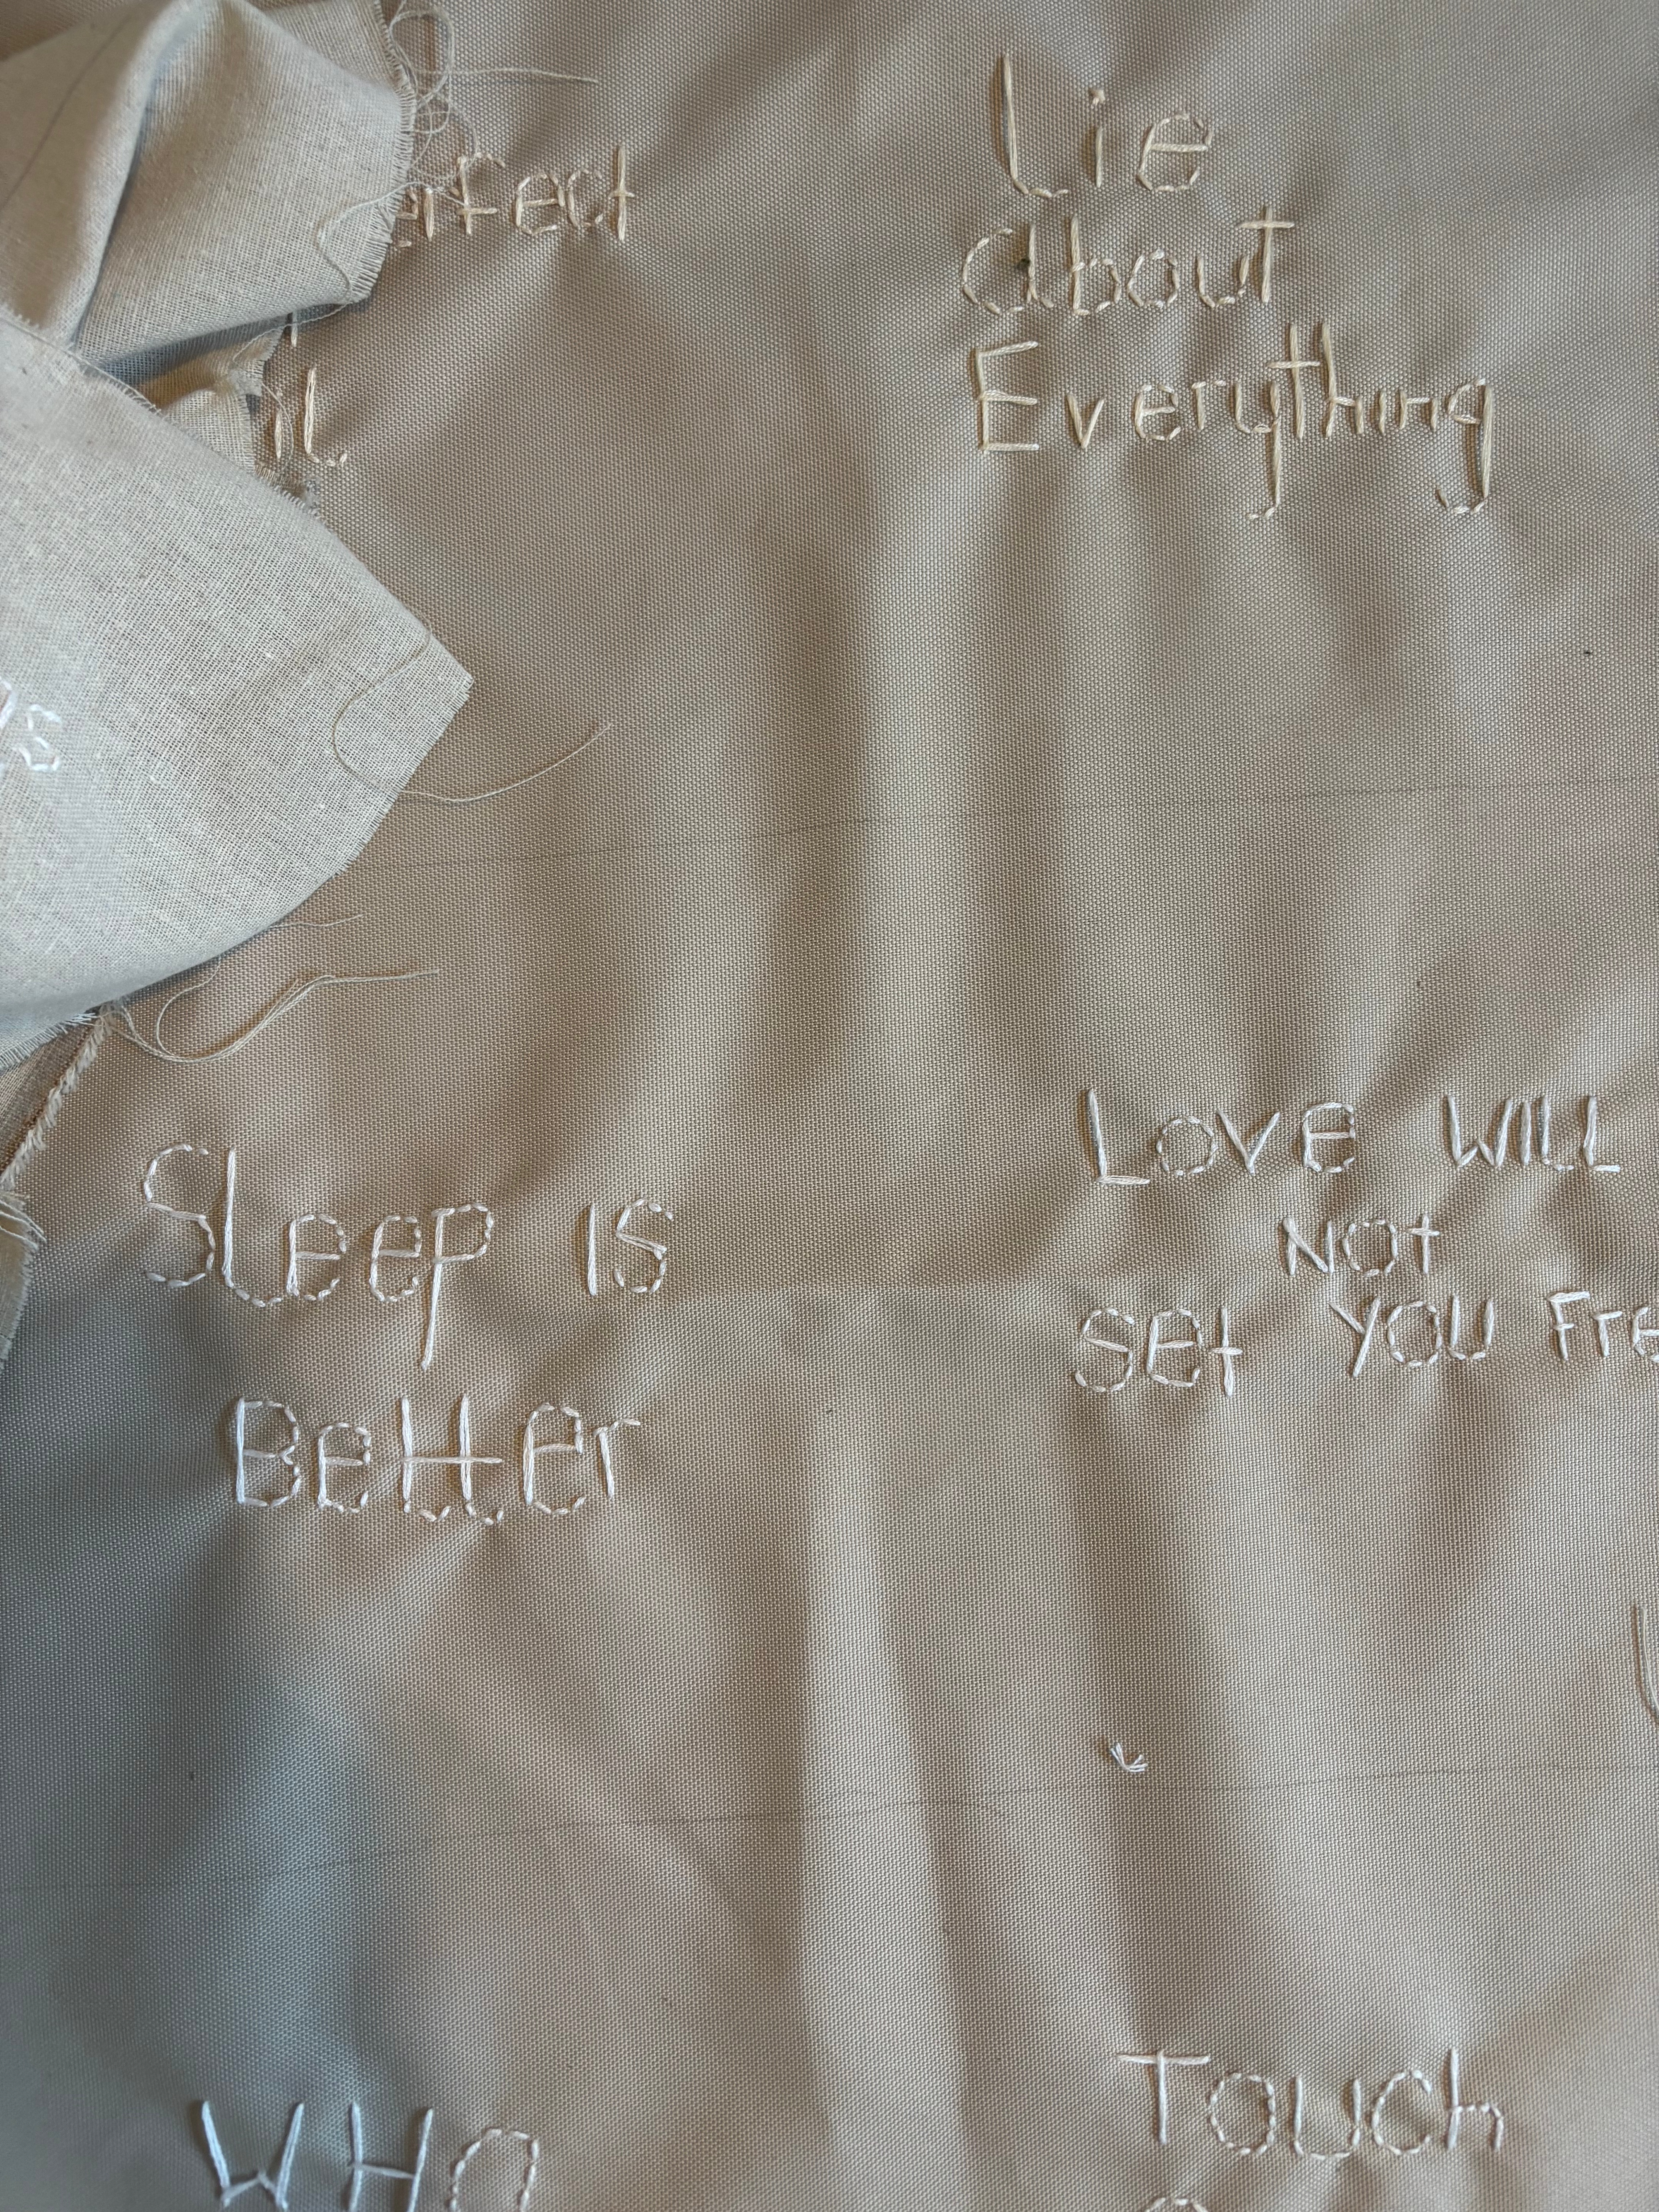 Lie
about
Everything
Sleep is
Better
LOVE WILL
NOt
SEt YOU Fre
WHO
Touch